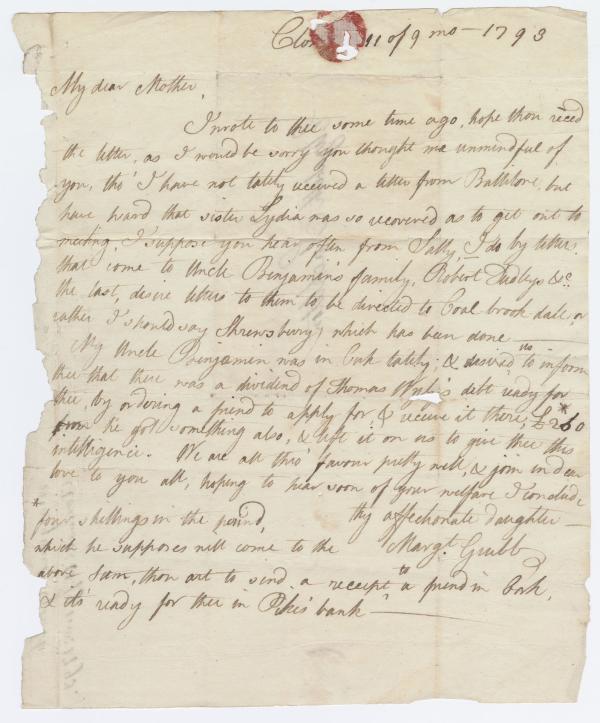 Clon 11 of 9 mo - 1793
My dear Mother,
I wrote to thee some time ago, hope thou reced
the letter, as I would be sorry you thought me unmindful of
you, tho' I have not lately received a letter from Ballitore, but
have heard that sister Lydia was so recovered as to get out to
meeting, I suppose you hear often from Sally, I do by letters
that come to Uncle Benjamin's family, Robert Dudleys &c.
the last, desire letters to them to be directed to Coal brook dale, or
rather I should say Shrewsbury, which has been done —
My Uncle Benjamin was in Cork lately; & desired us to inform
thee that there was a dividend of Thomas Wyly's debt ready for
thee, by ordering a friend to apply for & receive it there, £260*
from he got something also, & left it on us to give thee this
intelligence. We are all thro' favour pretty well, & join in dear
love to you all, hoping to hear soon of your welfare I conclude
thy affectionate daughter —
Margt. Grubb
* four shillings in the pound,
which he supposes will come to the
above sum, thou art to send a receipt to a friend in Cork,
& its ready for thee in Pike's bank —